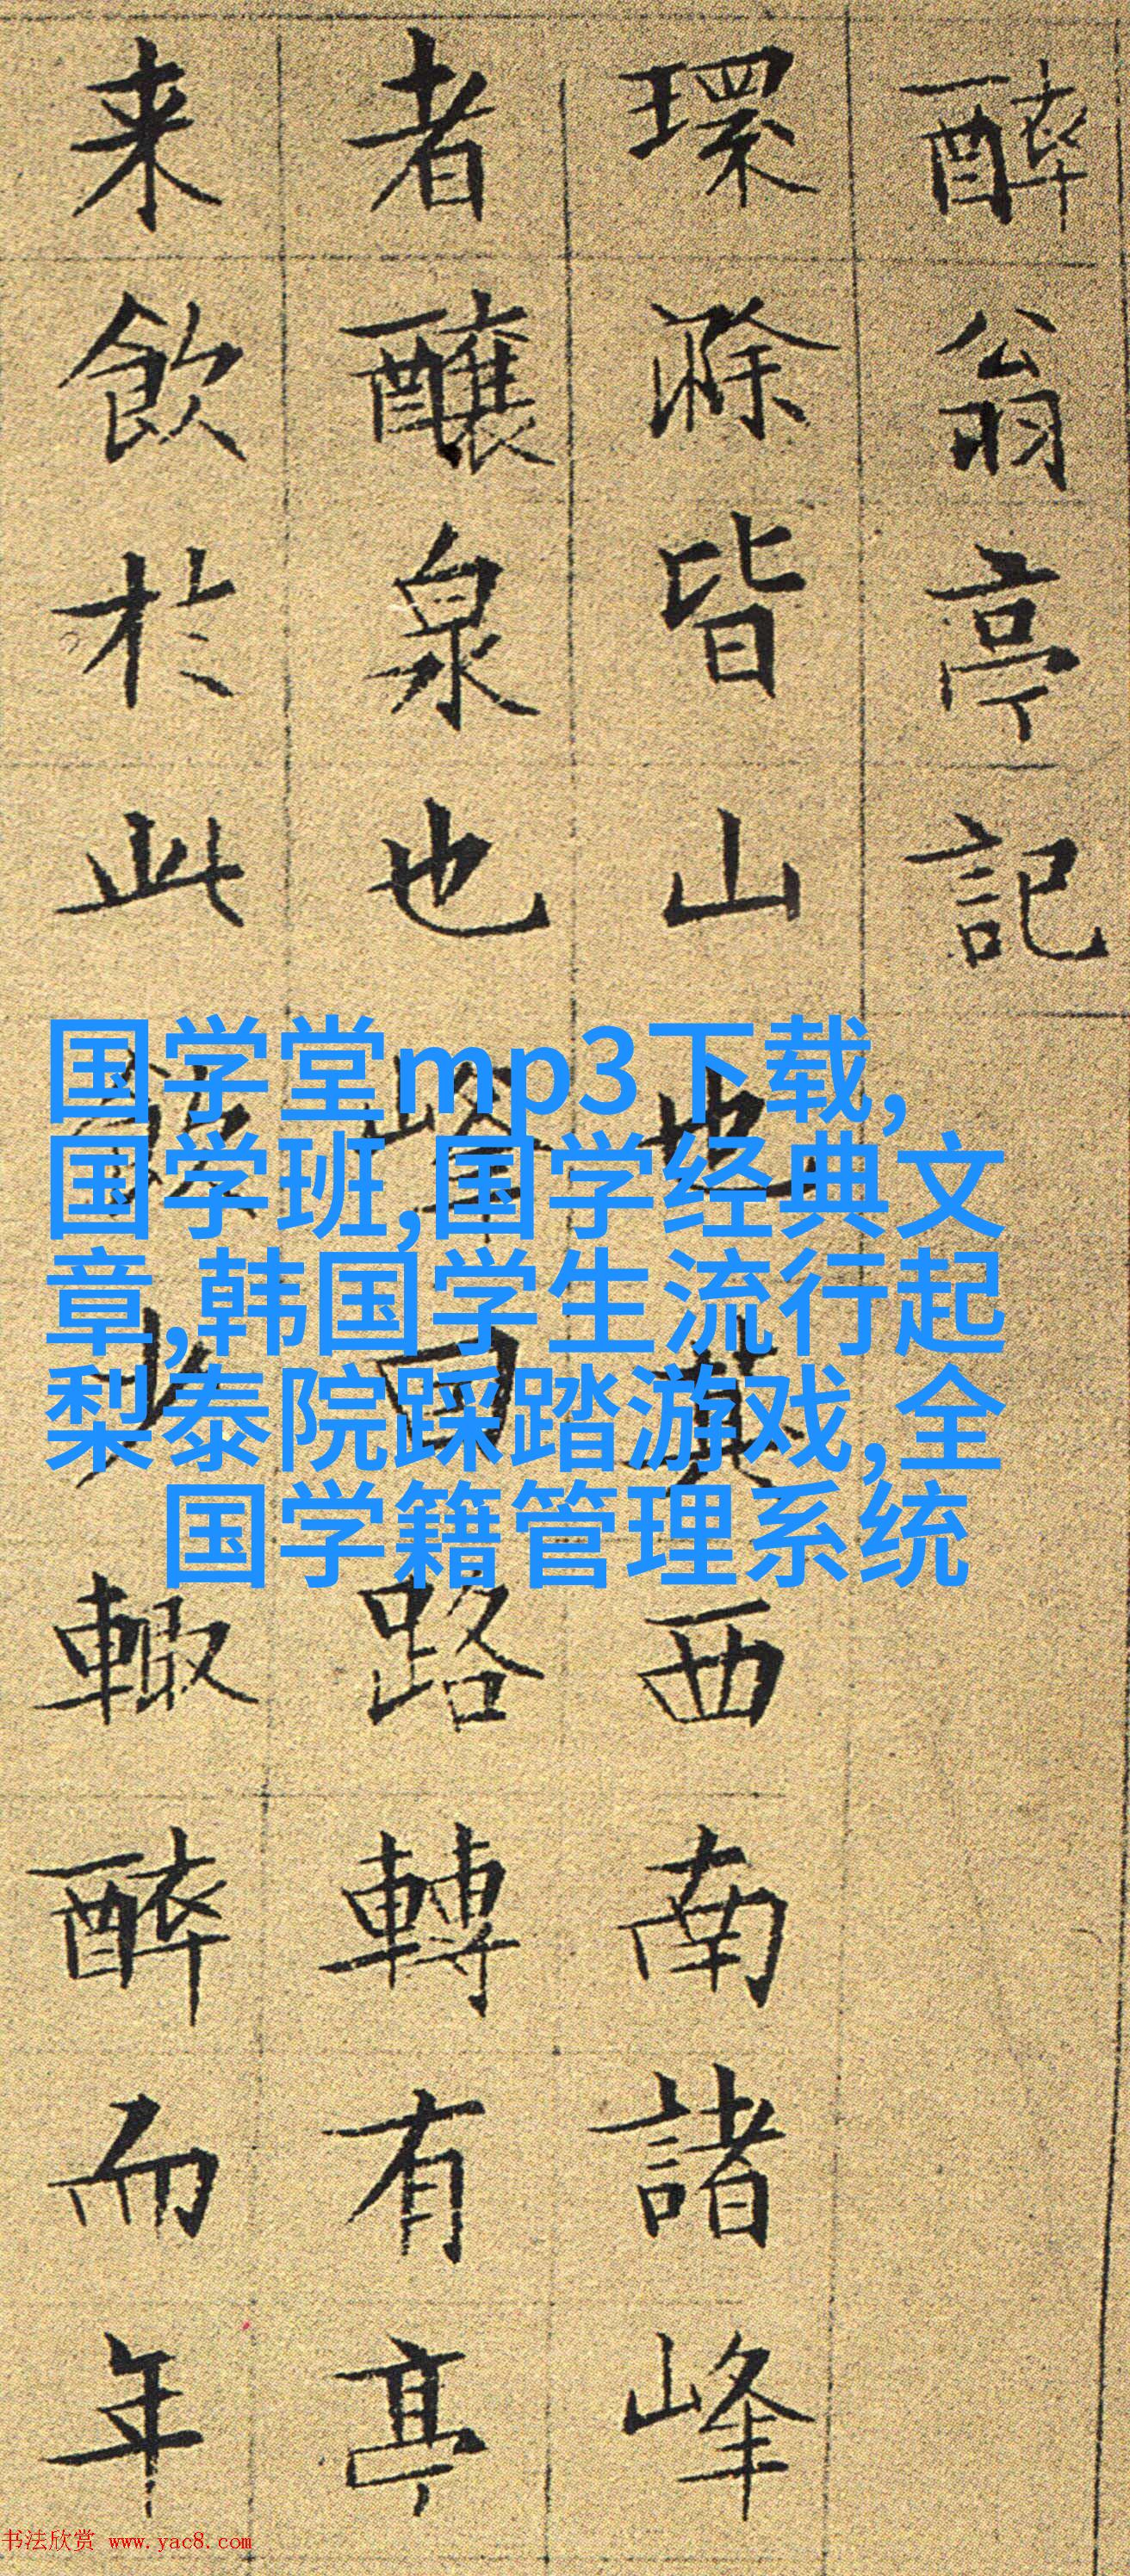 醉翁亭記
環滁皆山也其西南諸峰
者釀泉也峰回路轉有亭
来飲於此飲少輒醉而年
国学堂mp3下载,
国学班,国学经典文
章,韩国学生流行起
梨泰院踩踏游戏,全
国学籍管理系统
书法欣赏 www.yac8.com